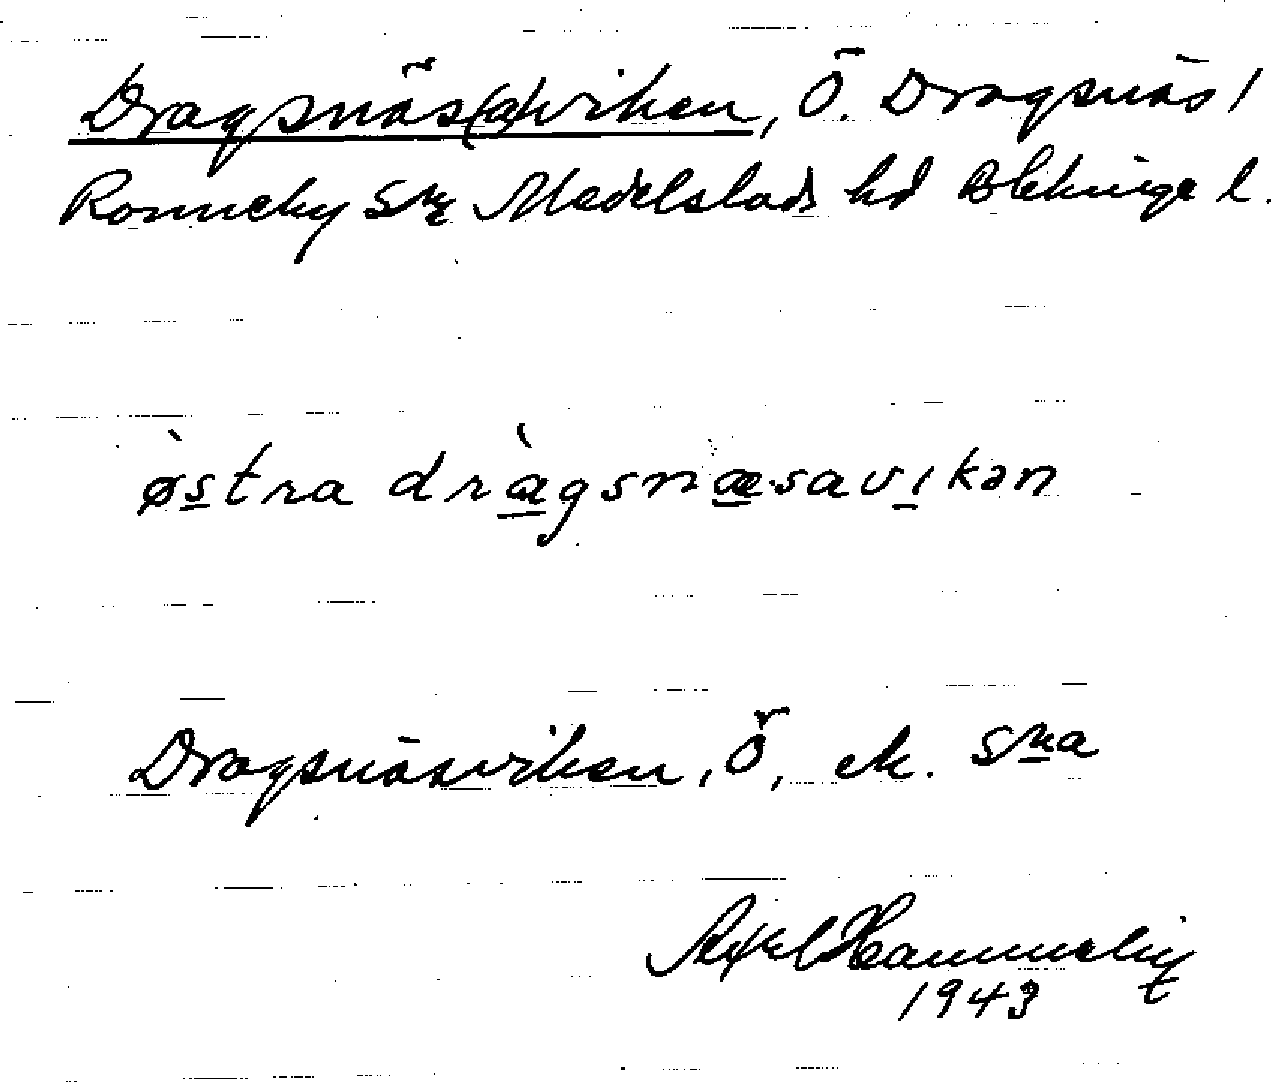 Dragsnäs(a)viken, Ö. Dragsnäs 1
Ronneby sn Medelstads hd Blekinge l.
östra dragsnæsavıkən
Dragsnäsviken, Ö, ek. ska
Axel Hammelin
1943